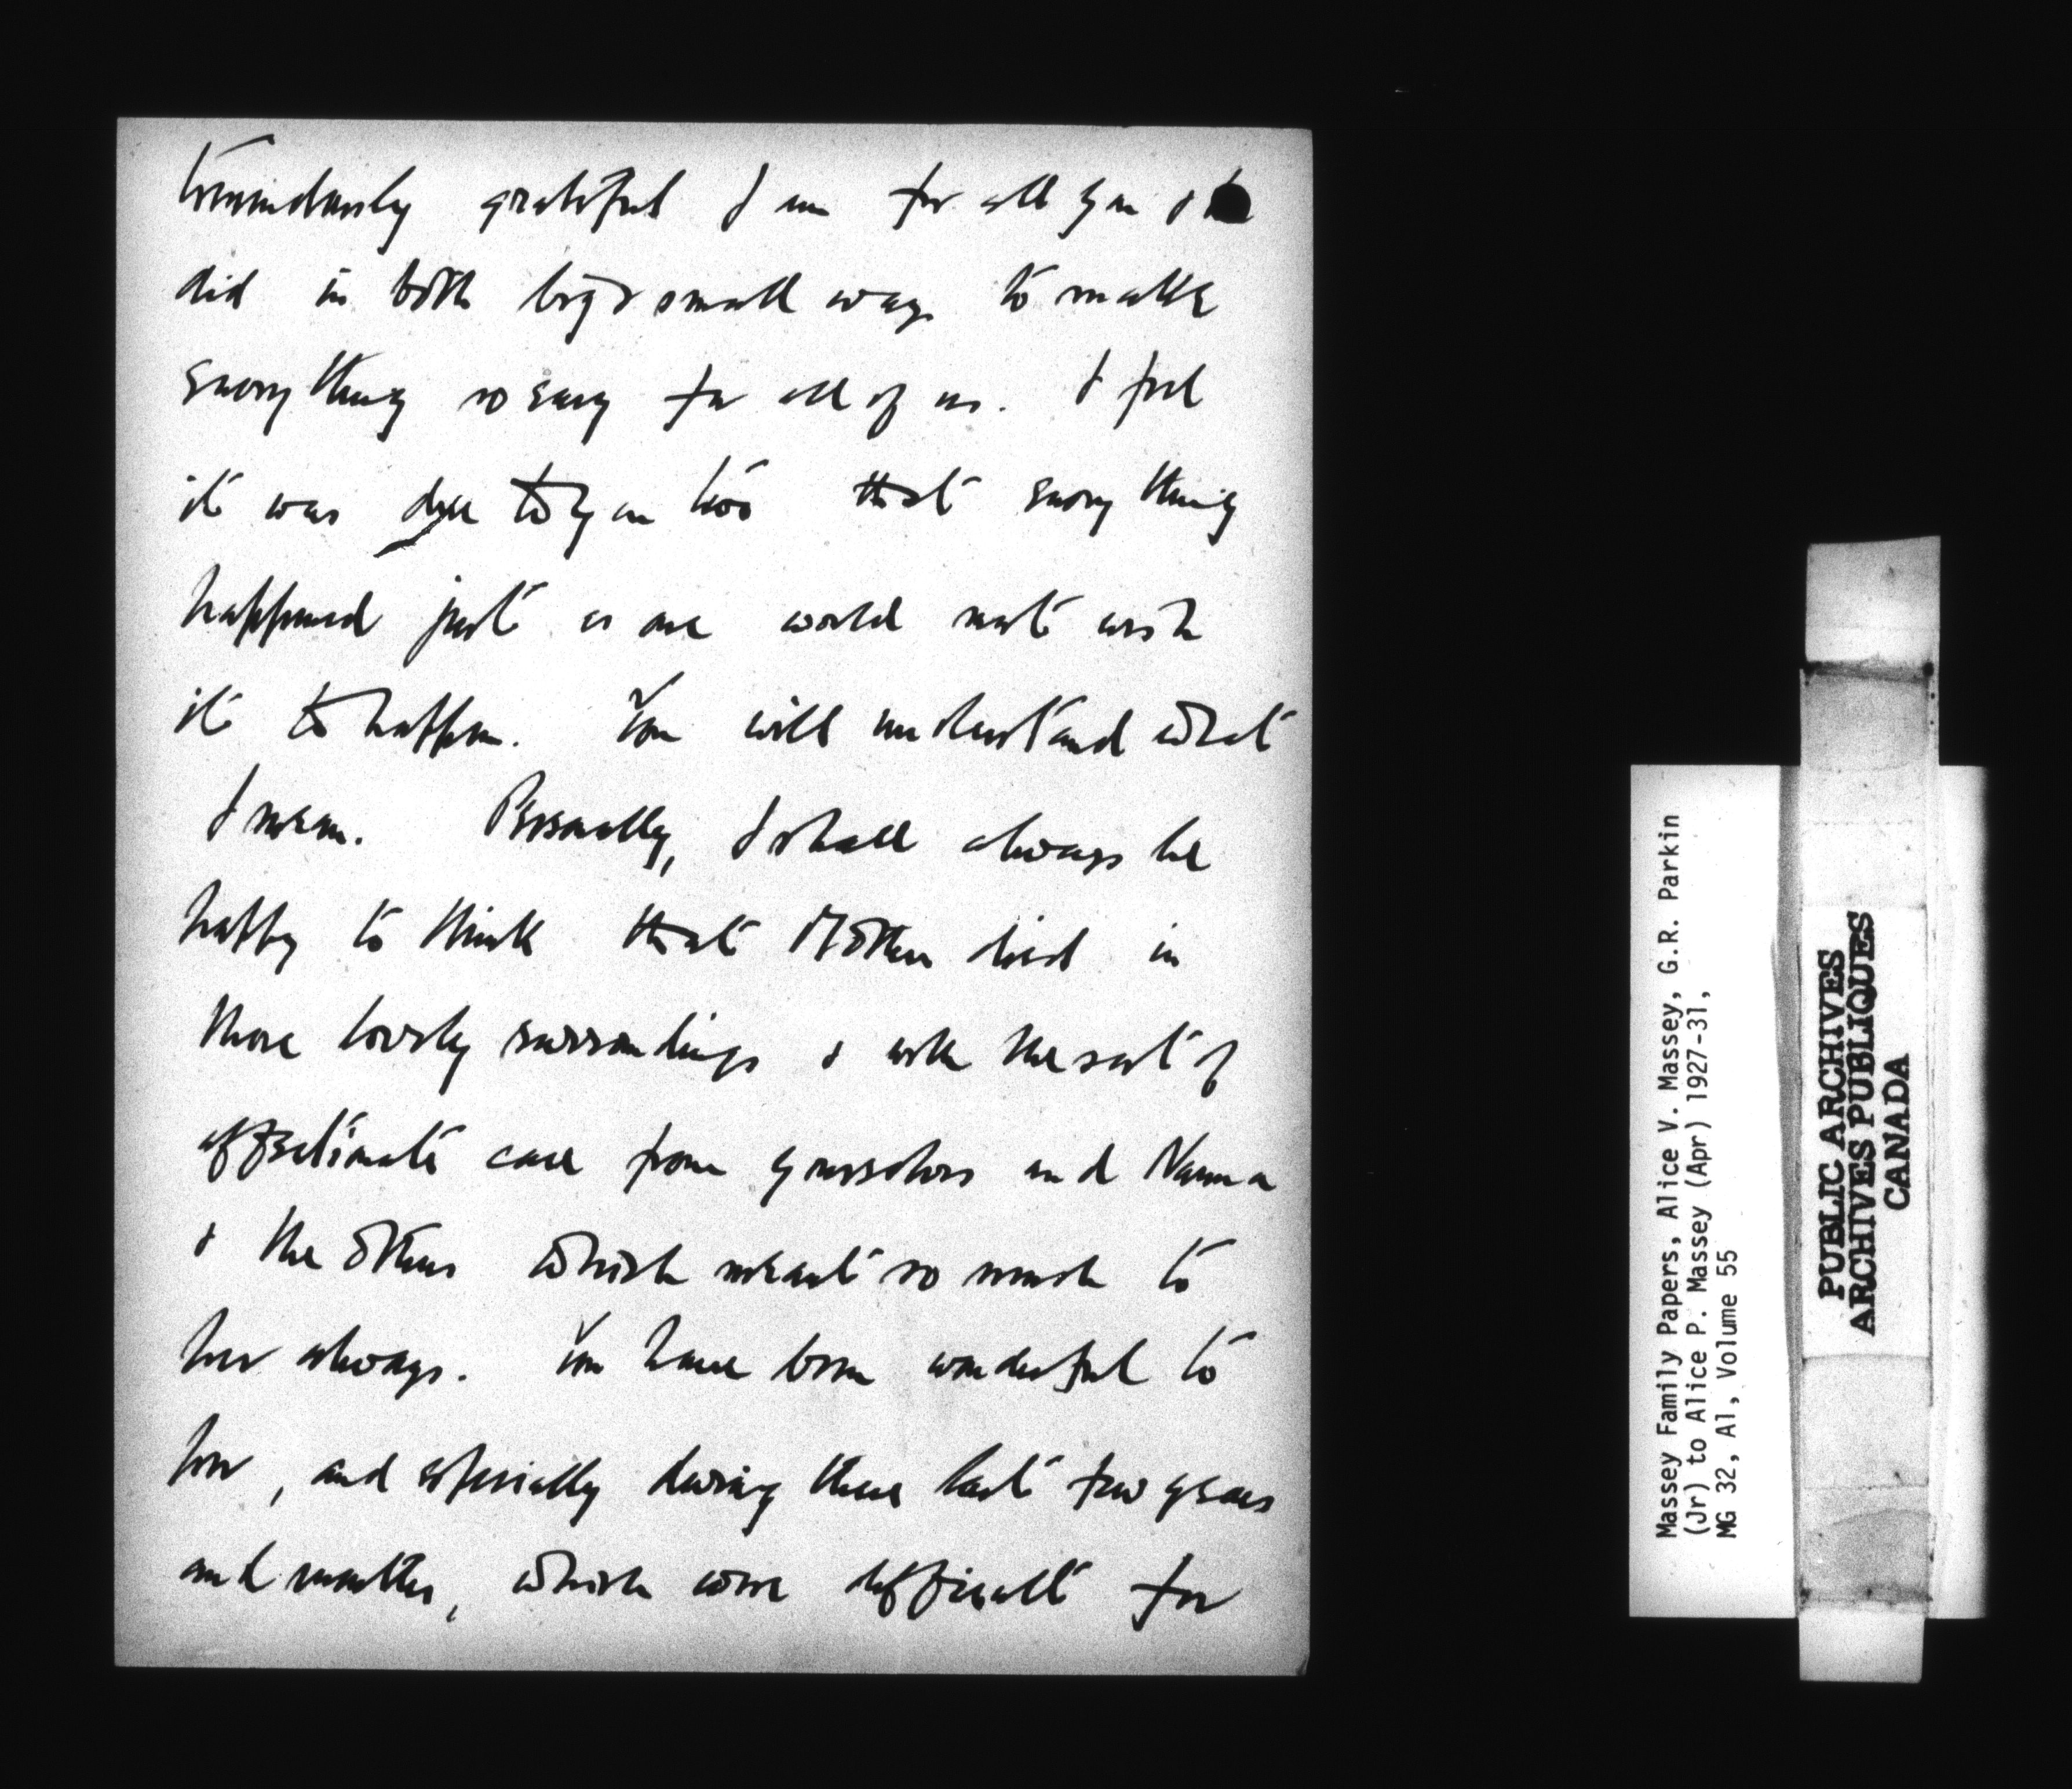 tremendously grateful I am for all you &
did in both big & small ways to make
everything so easy for all of us. I feel
it was due to you too that everything
happened just as one would most wish
it to happen. You will understand what
I mean. Personally, I shall always be
happy to think that Mother died in
those lovely surroundings & with the sort of
affectionate care from yourselves and Nanna
& the others which meant so much to
her always. You have been wonderful to
her, and especially during these last few years
and months, which were difficult for
Massey Family Papers, Alice V. Massey, G.R. Parkin
(Jr) to Alice P. Massey (Apr) 1927-31,
MG 32, A1, Volume 55
PUBLIC ARCHIVES
ARCHIVES PUBLIQUES
CANADA